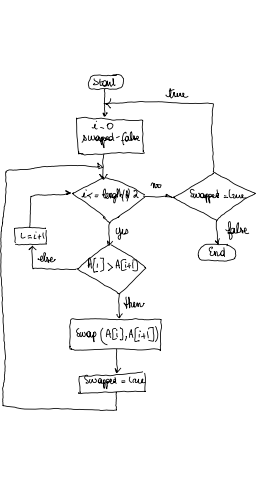 Start
true
i=0
swapped=false
no
Swapped = true
yes
false
i=i+1
else
A[i] > A[i+1]
End
then
Swap (A[i], A[i+1])
Swapped = true